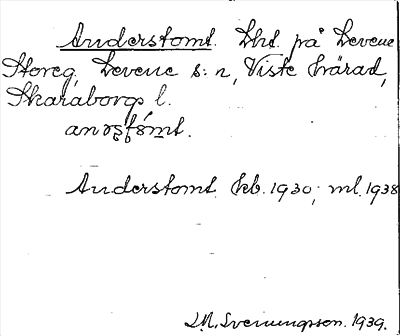 Anderstomt. Lht. på Levene
Storeg, Levene s:n, Viste härad,
Skaraborgs l.
Anderstomt kb. 1930; ml. 1938
J.M. Svenungsson. 1939.